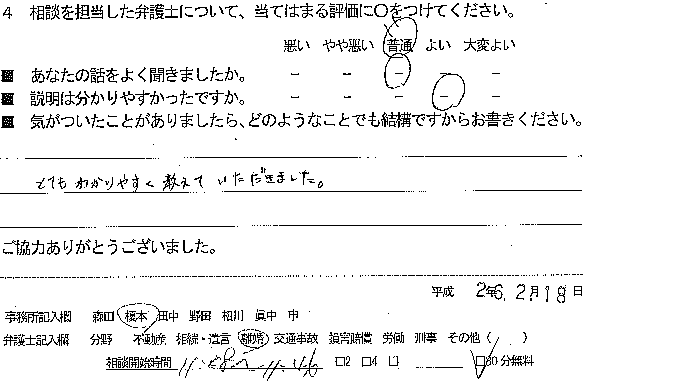 4 相談を担当した弁護士について、当てはまる評価に○をつけてください。
悪い やや悪い 普通 よい 大変よい
あなたの話をよく聞きましたか。 － － － － －
説明は分かりやすかったですか。 － － － － －
気がついたことがありましたら、どのようなことでも結構ですからお書きください。
とてもわかりやすく教えていただきました。
ご協力ありがとうございました。
平成 26年 2月18日
事務所記入欄 森田 榎本 田中 野田 相川 眞中 市
弁護士記入欄 分野 不動産 相続・遺言 離婚 交通事故 損害賠償 労働 刑事 その他（ ）
相談開始時間 □2 □4 □30分無料